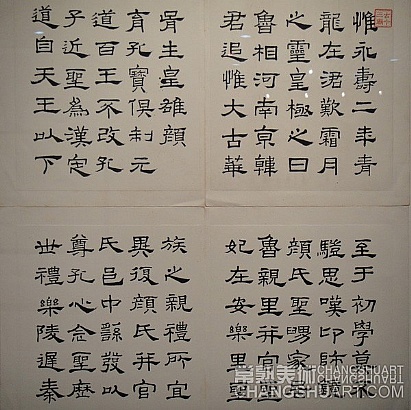 惟永壽二年青
龍在涒歎霜月
之靈皇極之日
魯相河南京韓
君追惟大古華
胥生皇雄顏
育孔寶俱制元
道百王不改孔
子近聖為漢定
道自天王以下
至于初學莫不
驥思嘆卬師
顏氏聖舅家
魯親里并官
妃在安樂里聖
族之親禮所宜
異復顏氏并官
氏邑中繇發以
尊孔心念聖歷
世禮樂陵遲秦
常熟美術
CHANGSHUART